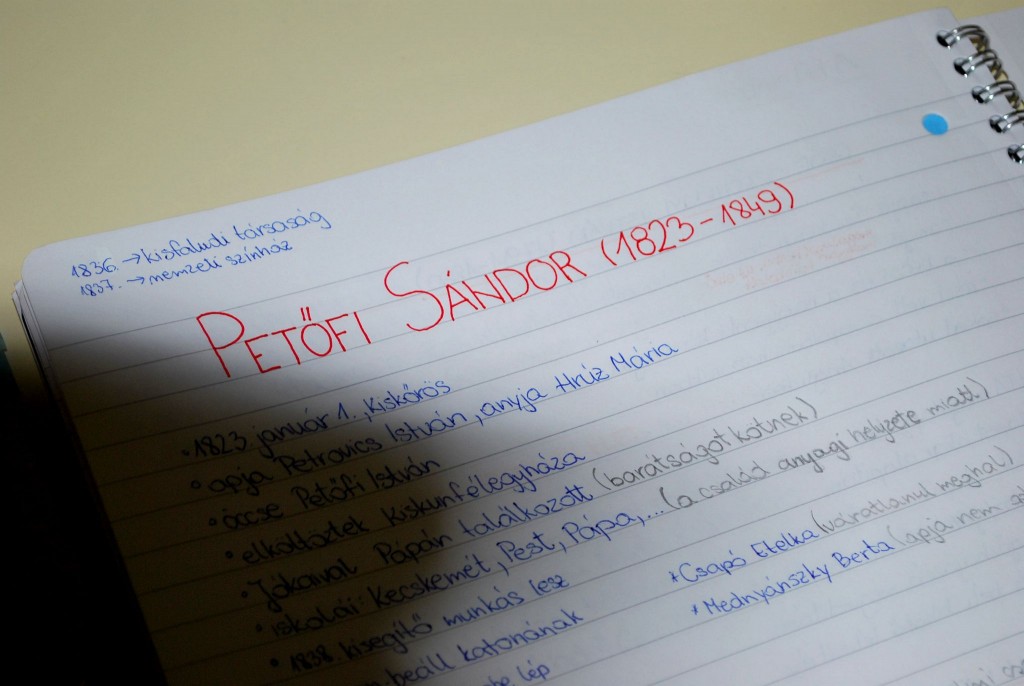 1836. → kisfaludi társaság
1837. → nemzeti színház
PETŐFI SÁNDOR (1823-1849)
• 1823. január 1., Kiskőrös
• apja Petrovics István, anyja Hrúz Mária
• öccse Petőfi István
• elköltöztek Kiskunfélegyháza
• Jókaival Pápán találkozott (barátságot kötnek)
• iskolái: Kecskemét, Pest, Pápa,... (a család anyagi helyzete miatt)
• 1838. kisegítő munkás lesz
* Csapó Etelka (váratlanul meghal)
beáll katonának
* Mednyánszky Berta (apja nem
lép